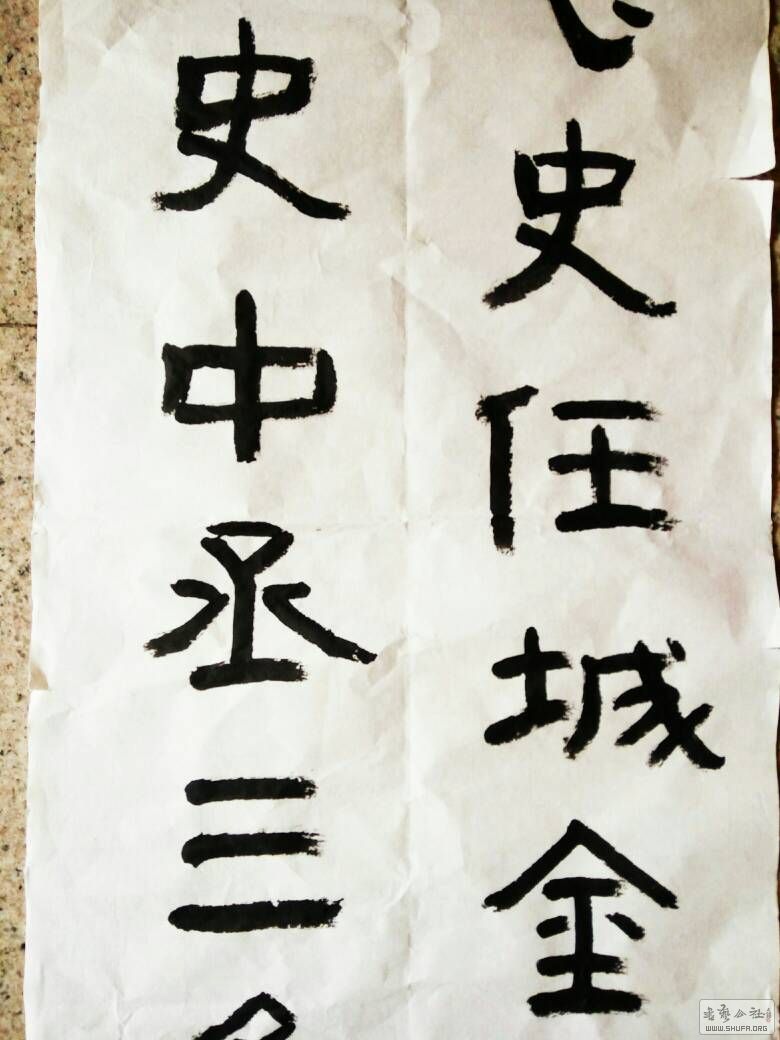 史任城金
史中丞三
書藝公社
WWW.SHUFA.ORG